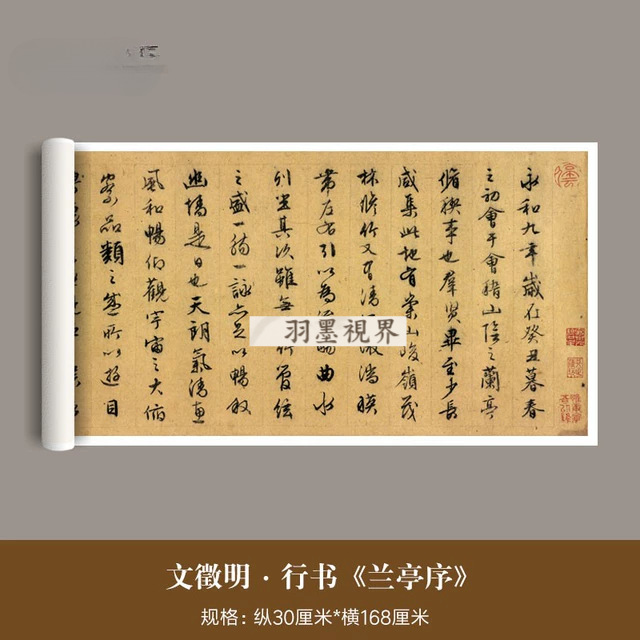 永和九年歲在癸丑暮春
之初會于會稽山陰之蘭亭
脩禊事也羣賢畢至少長
咸集此地有崇山峻嶺茂
林脩竹又有清激湍暎
帶左右引以為觴曲水
列坐其次雖無管絃
之盛一觴一詠亦足以暢叙
幽情是日也天朗氣清惠
風和暢仰觀宇宙之大俯
察品類之盛所以遊目
羽墨視界
文徵明·行书《兰亭序》
规格：纵30厘米*横168厘米